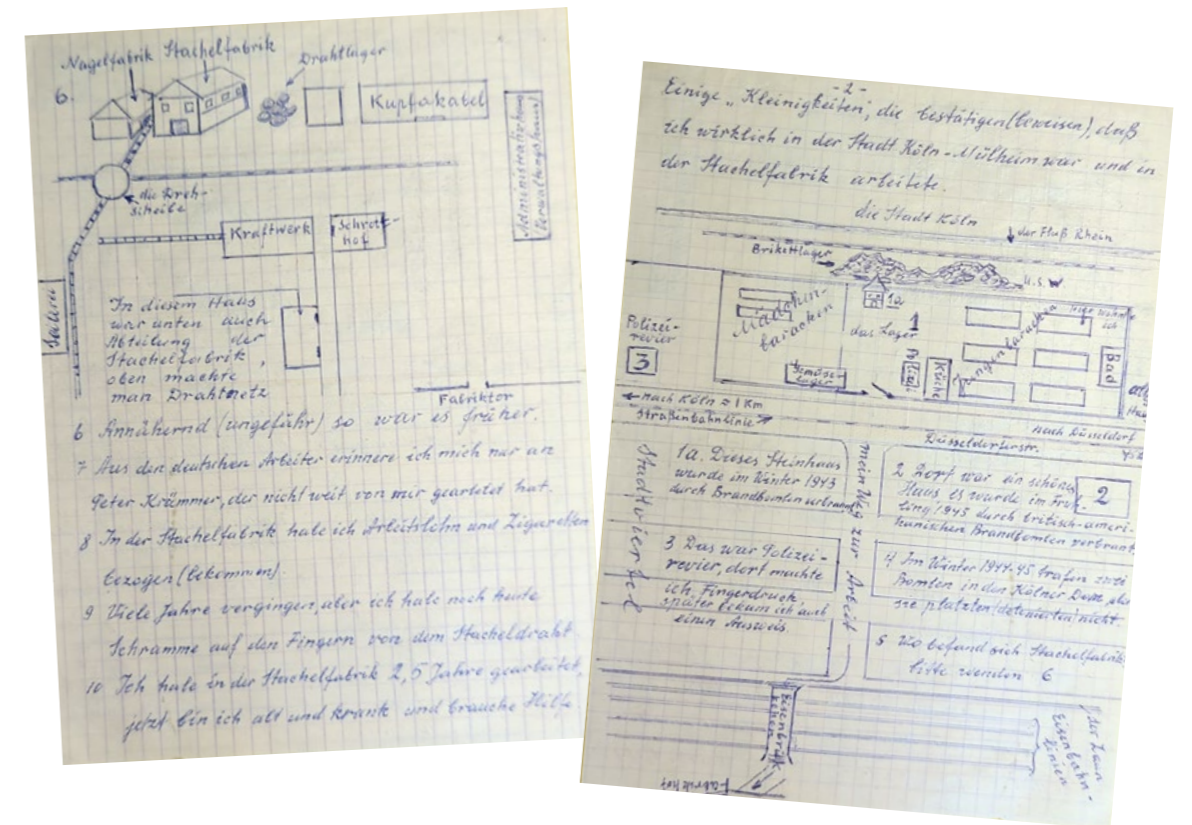 Nagelfabrik Stachelfabrik
Drahtlager
6.
Kupfakabel
Administratishes
Verwaltungshaus
die Dreh-
scheibe
Kraftwerk
Schrott-
hof
In diesem Haus
war unten auch
Abteilung der
Stachelfabrik,
oben machte
man Drahtnetz
Fabriktor
6 Annähernd (ungefähr) so war es früher.
7 Aus den deutschen Arbeiter erinnere ich mich nur an
Peter Krämmer, der nicht weit von mir gearbeitet hat.
8 In der Stachelfabrik habe ich Arbeitslohn und Zigaretten
bezogen (bekommen).
9 Viele Jahre vergingen, aber ich habe noch heute
Schramme auf den Fingern von dem Stacheldraht
10 Ich habe in der Stachelfabrik 2,5 Jahre gearbeitet,
jetzt bin ich alt und krank und brauche Hilfe.
- 2 -
Einige „Kleinigkeiten", die bestätigen (beweisen), daß
ich wirklich in der Stadt Köln-Mülheim war und in
der Stachelfabrik arbeitete.
die Stadt Köln
der Fluß Rhein
Brikettlager
u.s.w
Mädchen-
baracken
1a
1
das Lager
Jungenbaracken
Hier wohnte
ich
Polizei-
revier
3
Gemüse-
lager
Polizei
Küche
Bad
nach Köln ≈ 1 Km
Straßenbahnlinie
nach Düsseldorf
Düsseldorfurstr.
Stadtviertel
mein Weg zur Arbeit
1a. Dieses Steinhaus
wurde im Winter 1943
durch Brandbomben verbrannt
2 Dort war ein schönes
Haus es wurde im Früh-
ling 1945 durch britisch-ameri-
kanischen Brandbomben verbrant.
2
3 Das war Polizei-
revier, dort machte
ich Fingerdruck,
später bekam ich auch
einen Ausweis.
4 Im Winter 1944-45 trafen zwei
Bomben in den Kölner Dom, aber
sie platzten/detonierten/nicht.
5 Wo befand sich Stachelfabrik
bitte wenden 6
Eisenbrük
kchen
der Zaun
Eisenbahn-
linien
Fabrikhof